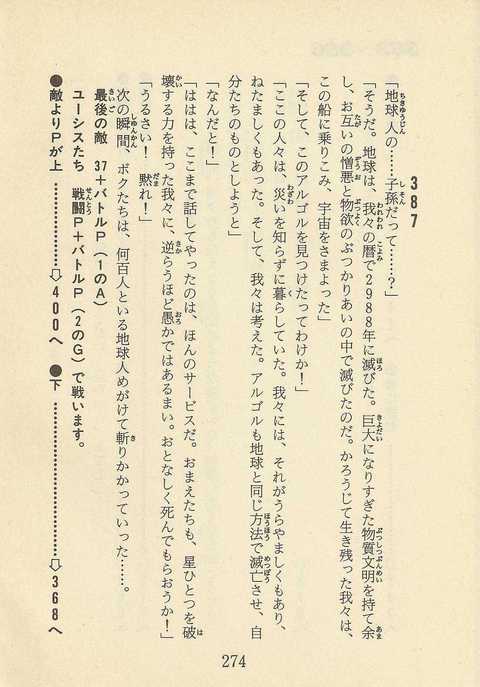 387
「地球人の……子孫だって……？」
「そうだ。地球は、我々の暦で2988年に滅びた。巨大になりすぎた物質文明を持て余
し、お互いの憎悪と物欲のぶつかりあいの中で滅びたのだ。かろうじて生き残った我々は、
この船に乗りこみ、宇宙をさまよった」
「そして、このアルゴルを見つけたってわけか！」
「ここの人々は、災いを知らずに暮らしていた。我々には、それがうらやましくもあり、
ねたましくもあった。そして、我々は考えた。アルゴルも地球と同じ方法で滅亡させ、自
分たちのものとしようと」
「なんだと！」
「ははは、ここまで話してやったのは、ほんのサービスだ。おまえたちも、星ひとつを破
壊する力を持った我々に、逆らうほど愚かではあるまい。おとなしく死んでもらおうか！」
「うるさい！　黙れ！」
次の瞬間、ボクたちは、何百人といる地球人めがけて斬りかかっていった……。
最後の敵　37＋バトルP（1のA）
ユーシスたち　戦闘P＋バトルP（2のG）で戦います。
●敵よりPが上………………⇨400へ　●下………………⇨368へ
274